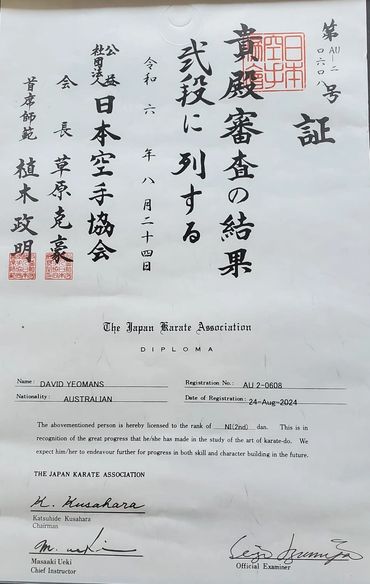 第AU-二〇六〇八号
証
貴殿審査の結果
弐段に列する
令和六年八月二十四日
公益社団法人日本空手協会
会長 草原克豪
首席師範 植木政明
The Japan Karate Association
DIPLOMA
Name: DAVID YEOMANS
Registration No.: AU 2-0608
Nationality: AUSTRALIAN
Date of Registration: 24-Aug-2024
The abovementioned person is hereby licensed to the rank of NI(2nd) dan. This is in
recognition of the great progress that he/she has made in the study of the art of karate-do. We
expect him/her to endeavour further for progress in both skill and character building in the future.
THE JAPAN KARATE ASSOCIATION
K. Kusahara
Katsuhide Kusahara
Chairman
M. Ueki
Masaaki Ueki
Chief Instructor
Official Examiner